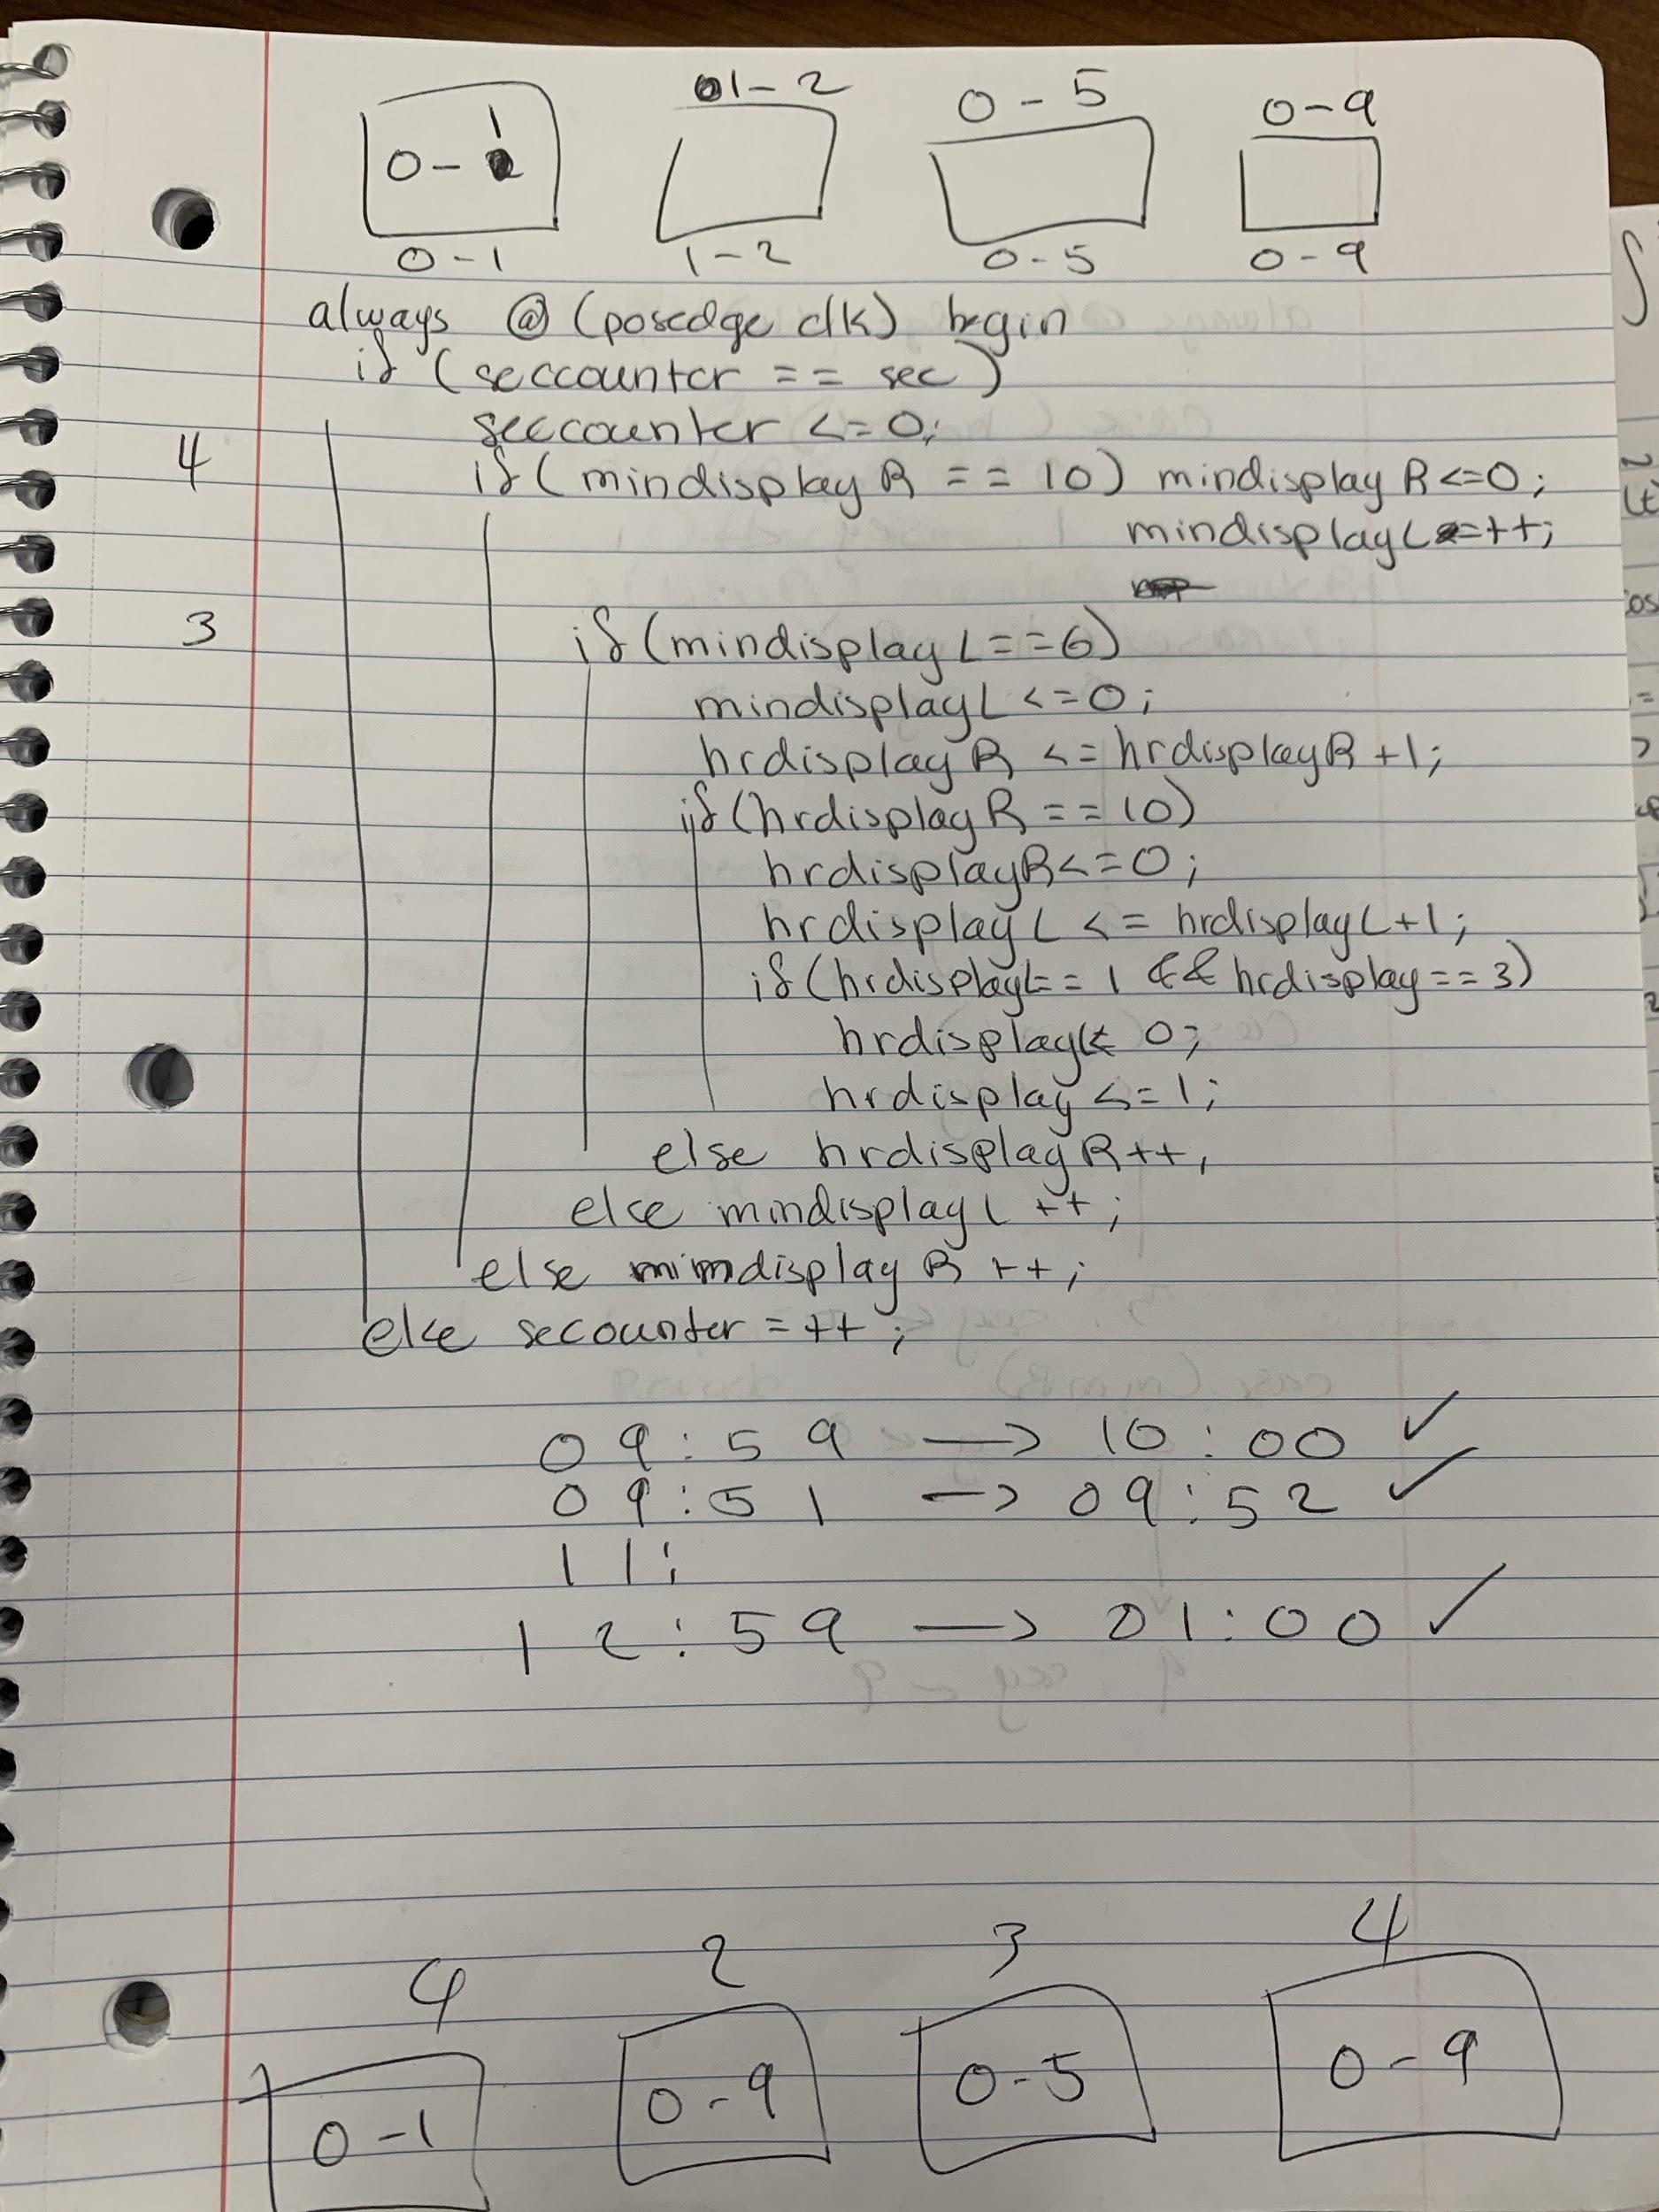 0-1 01-2 0-5 0-9
0-1 1-2 0-5 0-9
always @ (posedge clk) begin
if (seccounter == sec)
seccounter <=0;
4 if (mindisplay R == 10) mindisplay R<=0;
mindisplay L=++;
3 if (mindisplay L==6)
mindisplay L <=0;
hrdisplay R <= hrdisplayR +1;
if (hrdisplay R == 10)
hrdisplayR<=0;
hrdisplay L <= hrdisplay L+1;
if (hrdisplayL== 1 && hrdisplay==3)
hrdisplayL< 0;
hrdisplay <=1;
else hrdisplay R++,
else mindisplay L ++;
else mimdisplay R ++;
else secounter =++;
09:59 → 10:00 ✓
09:51 → 09:52 ✓
11:
12:59 → 01:00 ✓
4 2 3 4
0-1 0-9 0-5 0-9